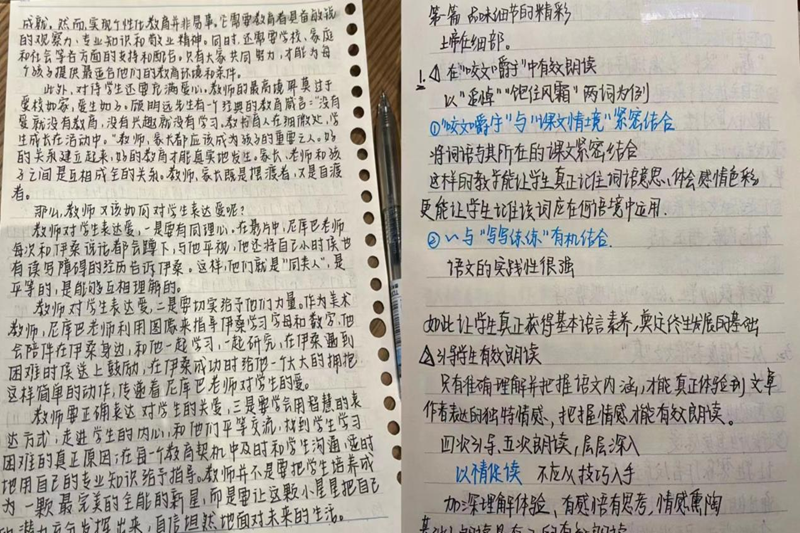 成就。然而，实现个性化教育并非易事，它需要教育者具备敏锐
的观察力、专业知识和敬业精神。同时，还需要学校、家庭
和社会等各方面的支持和配合。只有大家共同努力，才能为每
个孩子提供最适合他们的教育环境和条件。
此外，对待学生还要充满爱心，教师的最高境界莫过于
爱校如家，爱生如子。顾明远先生有个经典的教育箴言："没有
爱就没有教育，没有兴趣就没有学习，教书育人在细微处，学
生成长在活动中。"教师，家长都应该成为孩子的重要之人。好
的关系建立起来，好的教育才能真实地发生。家长、老师和孩
子之间是互相成全的关系。教师，家长既是摆渡者，又是自渡
者。
那么，教师又该如何对学生表达爱呢？
教师对学生表达爱，一是要有同理心。在影片中，尼库巴老师
每次和伊桑说话都会蹲下，与他平视，他还将自己小时候也
有读写障碍的经历告诉伊桑。这样，他们就是"同类人"，是
平等的，是能够互相理解的。
教师对学生表达爱，二是要切实给予他们力量。作为美术
教师，尼库巴老师利用图像来指导伊桑学习字母和数字，他
会陪伴在伊桑身边，和他一起学习，一起研究，在伊桑遇到
困难时候送上鼓励，在伊桑成功时给他一个大大的拥抱
这样简单的动作，传递着尼库巴老师对学生的爱。
教师要正确表达对学生的关爱，三是要学会用智慧的表
达方式，走进学生的内心，和他们平等交流，找到学生学习
困难的真正原因；在每个教育契机中及时和学生沟通，适时
地用自己的专业知识给予指导。教师并不是要把学生培养成
为一颗最完美的全能的新星，而是要让这颗小星星把自己
潜力充分发挥出来，自信坦然地面对未来的生活。
第一篇 品味细节的精彩
上帝在细部。
1. △ 在"咬文嚼字"中有效朗读
以"丢掉""饱经风霜"两词为例
①"咬文嚼字"与"课文情境"紧密结合
将词语与其所在的课文紧密结合
这样的教学能让学生真正记住词语意思、体会感情色彩
更能让学生记住该词应在何语境中应用.
② 〃与"写写练练"有机结合.
语文的实践性很强
如此让学生真正获得基本语言素养，奠定终生发展的基础
△引导学生有效朗读
只有准确理解并把握语文内涵，才能真正体验到文章
作者表达的独特情感，把握情感才能有效朗读。
四次引导、五次朗读，层层深入
以情促读 不应从技巧入手
加深理解体验，有感悟有思考，情感熏陶